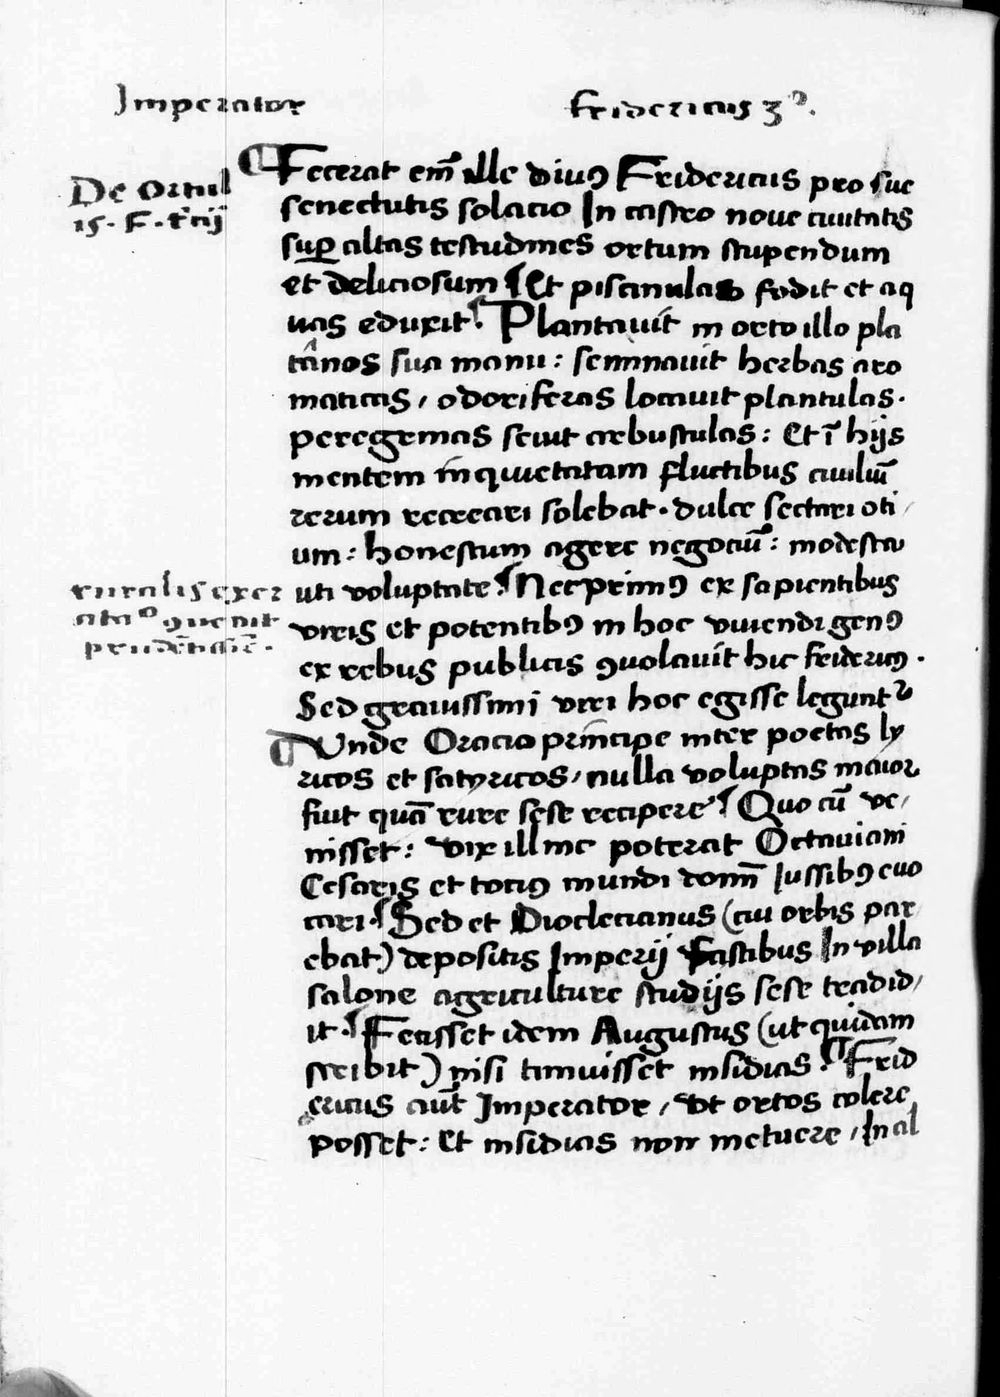 Imperator Fridericus 3º.
De Ortul
15. F. t̃cij
¶ Fecerat em̃ ille diuꝰ Fridericus pro sue
senectutis solacio In castro noue ciuitatis
suꝑ altas testudines ortum stupendum
et deliciosum ¶ Et piscinulas fodit et aq
uas eduxit. ¶ Plantauit in orto illo pla
tanos sua manu : seminauit herbas aro
maticas, odoriferas locauit plantulas.
peregrinas seuit arbustulas : Et ĩ hijs
mentem inquietatam fluctibus ciuiliũ
rerum recreari solebat. dulce sectari oti/
um : honestum agere negociũ : modesta
uti voluptate. ¶ Nec primꝰ ex sapientibus
viris et potentibꝰ in hoc viuendi genꝰ
ex rebus publicis ꝯuolauit hic fridericꝰ.
ruralis exer
ꝯuenit
Sed grauissimi viri hoc egisse legunt᷑
¶ Unde Oracio principe inter poetas ly
ricos et satyricos, nulla voluptas maior
fuit quã rure sese recipere. ¶ Quo cũ ve/
nisset : vix ill inc poterat Octauiani
Cesaris et tociꝰ mundi domĩ Iussibꝰ euo
cari. ¶ Sed et Dioclecianus (cui orbis par
ebat) depositis Imperij Fastibus In villa
salone agriculture studijs sese tradid/
it. ¶ Fecisset idem Augustus (ut quidam
scribit) nisi timuisset insidias. ¶ Frid
ericus aut̃ Imperator, vt ortos colere
posset : Et insidias non metuere, In al